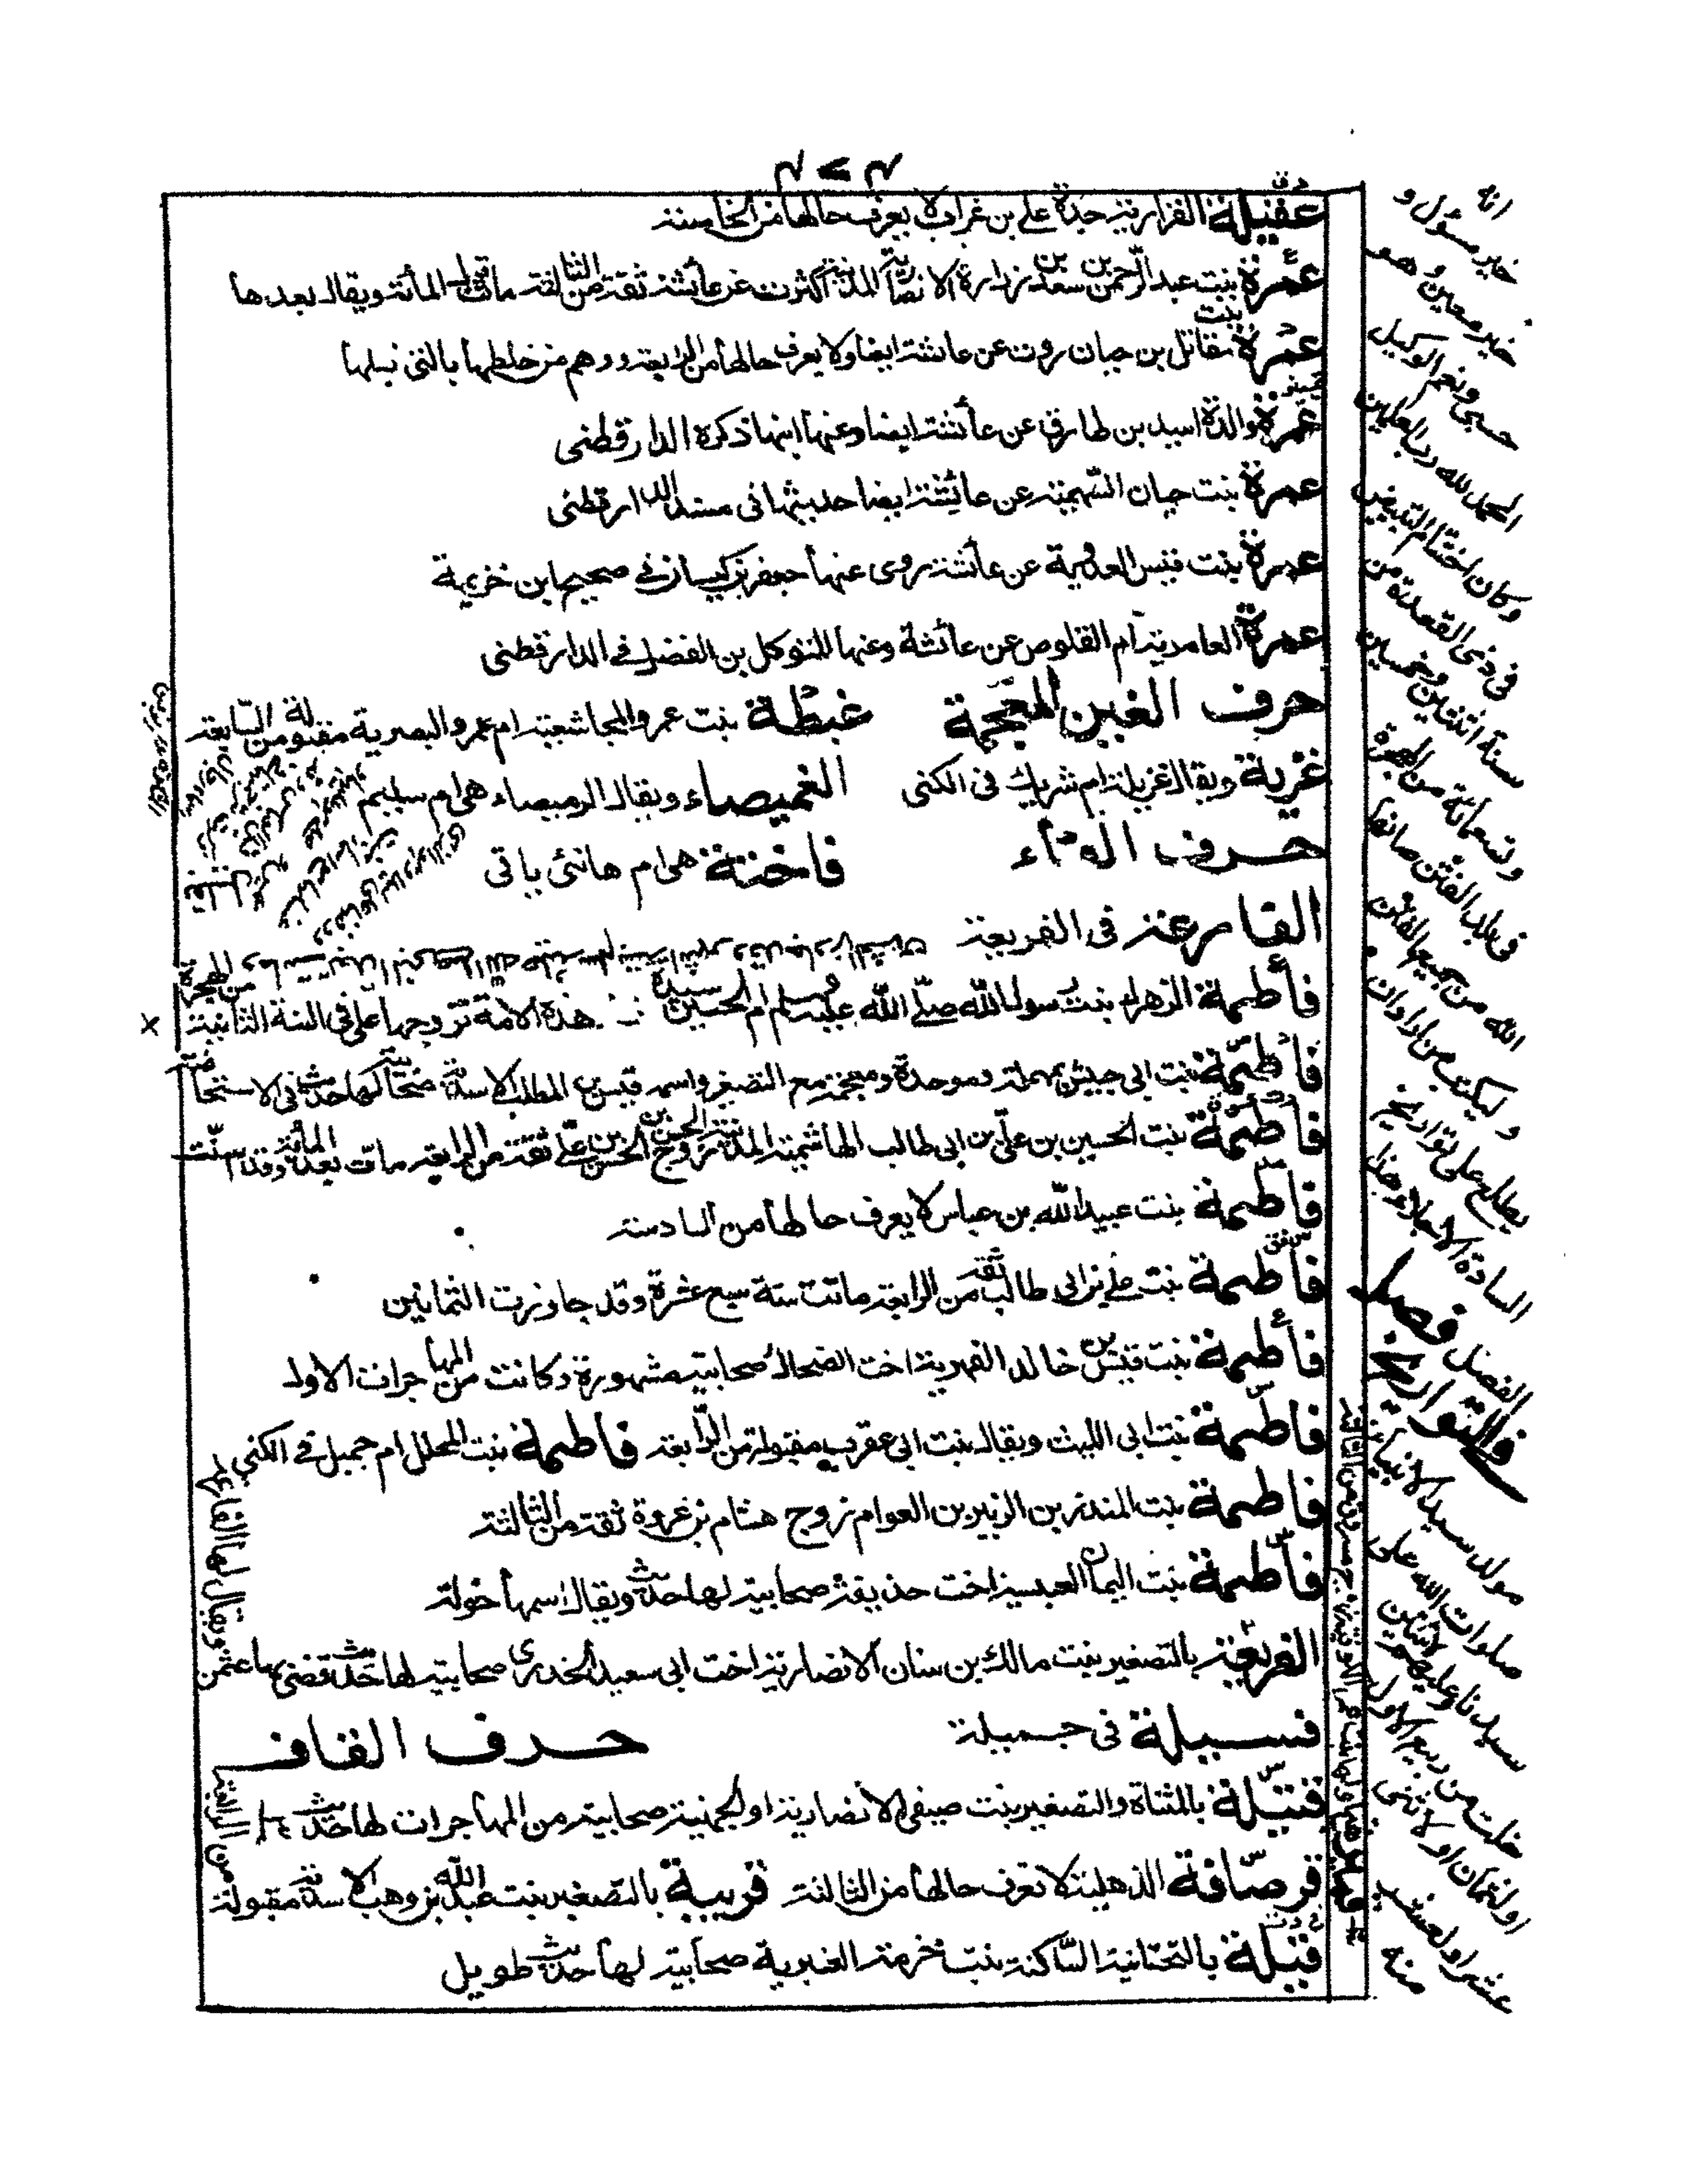 عقيلة الفزارية جدة علي بن غراب لا يعرف حالها من الخامسة
عمرة بنت عبد الرحمن بن سعد بن زرارة الانصارية المدنية اكثرت عن عائشة ثقة من الثالثة ماتت قبل المائة ويقال بعدها
عمرة بنت مقاتل بن حيان روت عن عائشة ايضا ولا يعرف حالها من الرابعة ووهم من خلطها بالتي قبلها
عمرة والدة اسيد بن طارق عن عائشة ايضا وعنها ابنها ذكرة الدارقطني
عمرة بنت حيان السهمية عن عائشة ايضا حديثها في مسند الدارقطني
عمرة بنت قيس العدوية عن عائشة روى عنها جعفر بن كيسان في صحيح ابن خزيمة
عمرة الغامدية ام القلوص عن عائشة وعنها المتوكل بن الفضل في الدارقطني
حرف الغين المعجمة غبطة بنت عمرو المجاشعية ام عمرو البصرية مقبولة من السابعة
غزية ويقال غزيلة ام شريك في الكنى الغميصاء ويقال الرميصاء هي ام سليم
حرف الفاء فاختة هي ام هانئ ياتي
الفارعة في الفريعة
فاطمة الزهراء بنت رسول الله صلى الله عليه وسلم ام الحسين سيدة هذة الامة تزوجها علي في السنة الثانية من الهجرة
فاطمة بنت ابي حبيش بمهملة وموحدة ومعجمة مع التصغير واسمه قيس بن المطلب الاسدية صحابية لها حديث في الاستحاضة
فاطمة بنت الحسين بن علي بن ابي طالب الهاشمية المدنية زوج الحسن بن الحسن بن علي ثقة من الرابعة ماتت بعد المائة وقد اسنت
فاطمة بنت عبيد الله بن عباس لا يعرف حالها من السادسة
فاطمة بنت علي بن ابي طالب ثقة من الرابعة ماتت سنة سبع عشرة وقد جاوزت الثمانين
فاطمة بنت قيس بن خالد الفهرية اخت الضحاك صحابية مشهورة وكانت من المهاجرات الاول
فاطمة بنت ابي الليث ويقال بنت ابي عقرب مقبولة من الرابعة فاطمة بنت المحلل ام جميل في الكنى
فاطمة بنت المنذر بن الزبير بن العوام زوج هشام بن عروة ثقة من الثالثة
فاطمة بنت اليمان العبسية اخت حذيفة صحابية لها حديث ويقال اسمها خولة
الفريعة بالتصغير بنت مالك بن سنان الانصارية اخت ابي سعيد الخدري صحابية لها حديث قضى بها عثمن
ويقال لها الفارعة
فسيلة في جميلة حرف القاف
قتيلة بالمثناة والتصغير بنت صيفي الانصارية او الجهنية صحابية من المهاجرات لها حديث
قرصافة الذهلية لا تعرف حالها من الثالثة قريبة بالتصغير بنت عبد الله بن وهب الاسدية مقبولة
من الرابعة
قيلة بالتحتانية الساكنة بنت مخرمة العنبرية صحابية لها حديث طويل
انه
خير مسئول و
خير معين وهو
حسبي ونعم الوكيل
الحمد لله رب العلمين
وكان اختتام التبييض
في ذي القعدة من
سنة اثنتين وخمسين
وتسعمائة من الهجرة
الله من جميع الفتن
وليكتب من اراد ان
يطلع على تواريخ
السادة الاجلاء هذا
الفصل فصل
في التواريخ
مولد سيد الانبياء
صلوات الله على
سيدنا وعليهم
خلت من ربيع الاول
او لثمان او لاثنتي
عشر او لعشر
منه